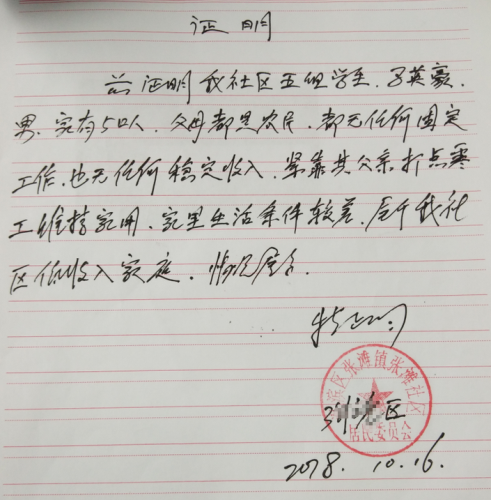 证明
兹证明我社区五组学生,子英豪,
男,家有5口人,父母都是农民,都无任何固定
工作,也无任何稳定收入,紧靠其父亲打点零
工维持家用,家里生活条件较差,属于我社
区低收入家庭,情况属实.
特此证明
滨区张滩镇张滩社区
居民委员会
区
2018.10.16.